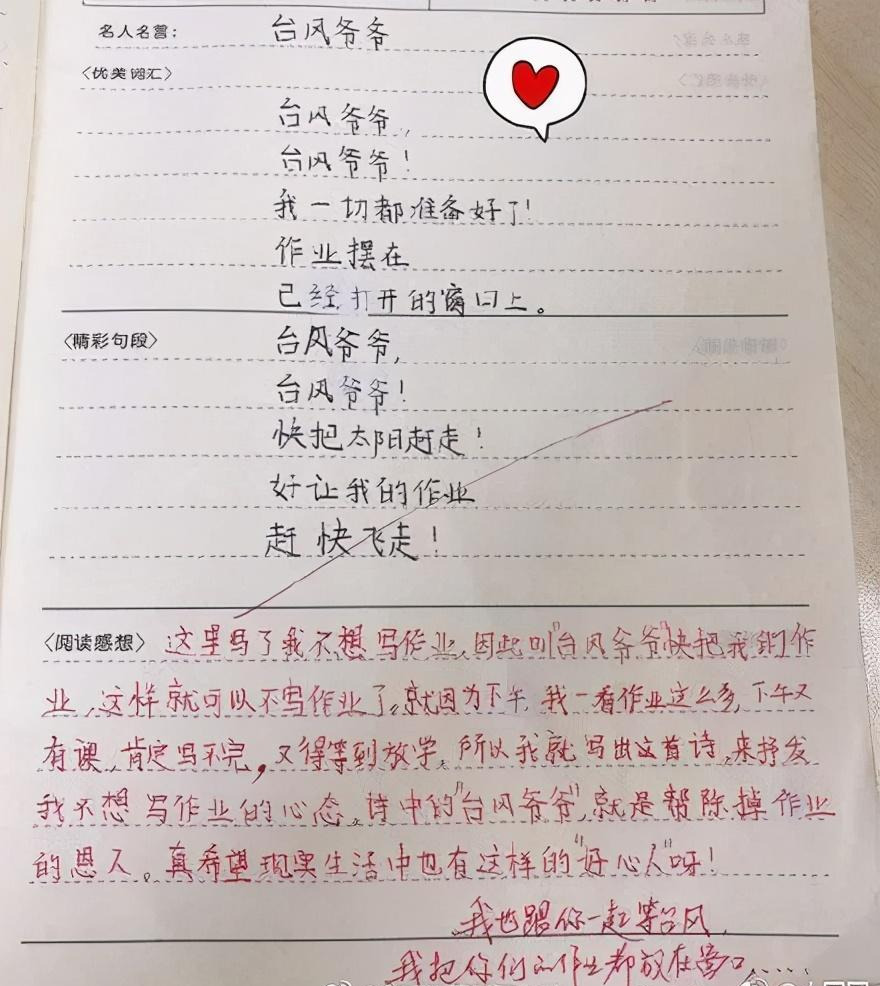 名人名言：
台风爷爷
〈优美词汇〉
台风爷爷，
台风爷爷！
我一切都准备好了！
作业摆在
已经打开的窗口上。
〈精彩句段〉
台风爷爷，
台风爷爷！
快把太阳赶走！
好让我的作业
赶快飞走！
〈阅读感想〉 这里写了我不想写作业，因此叫"台风爷爷"快把我们作
业，这样就可以不写作业了。就因为下午，我一看作业这么多，下午又
有课，肯定写不完，又得等到放学，所以我就写出这首诗，来抒发
我不想写作业的心态。诗中的"台风爷爷"，就是帮除掉作业
的恩人。真希望现实生活中也有这样的"好心人"呀！
我也跟你一起等台风，
我把你们的作业都放在窗口……